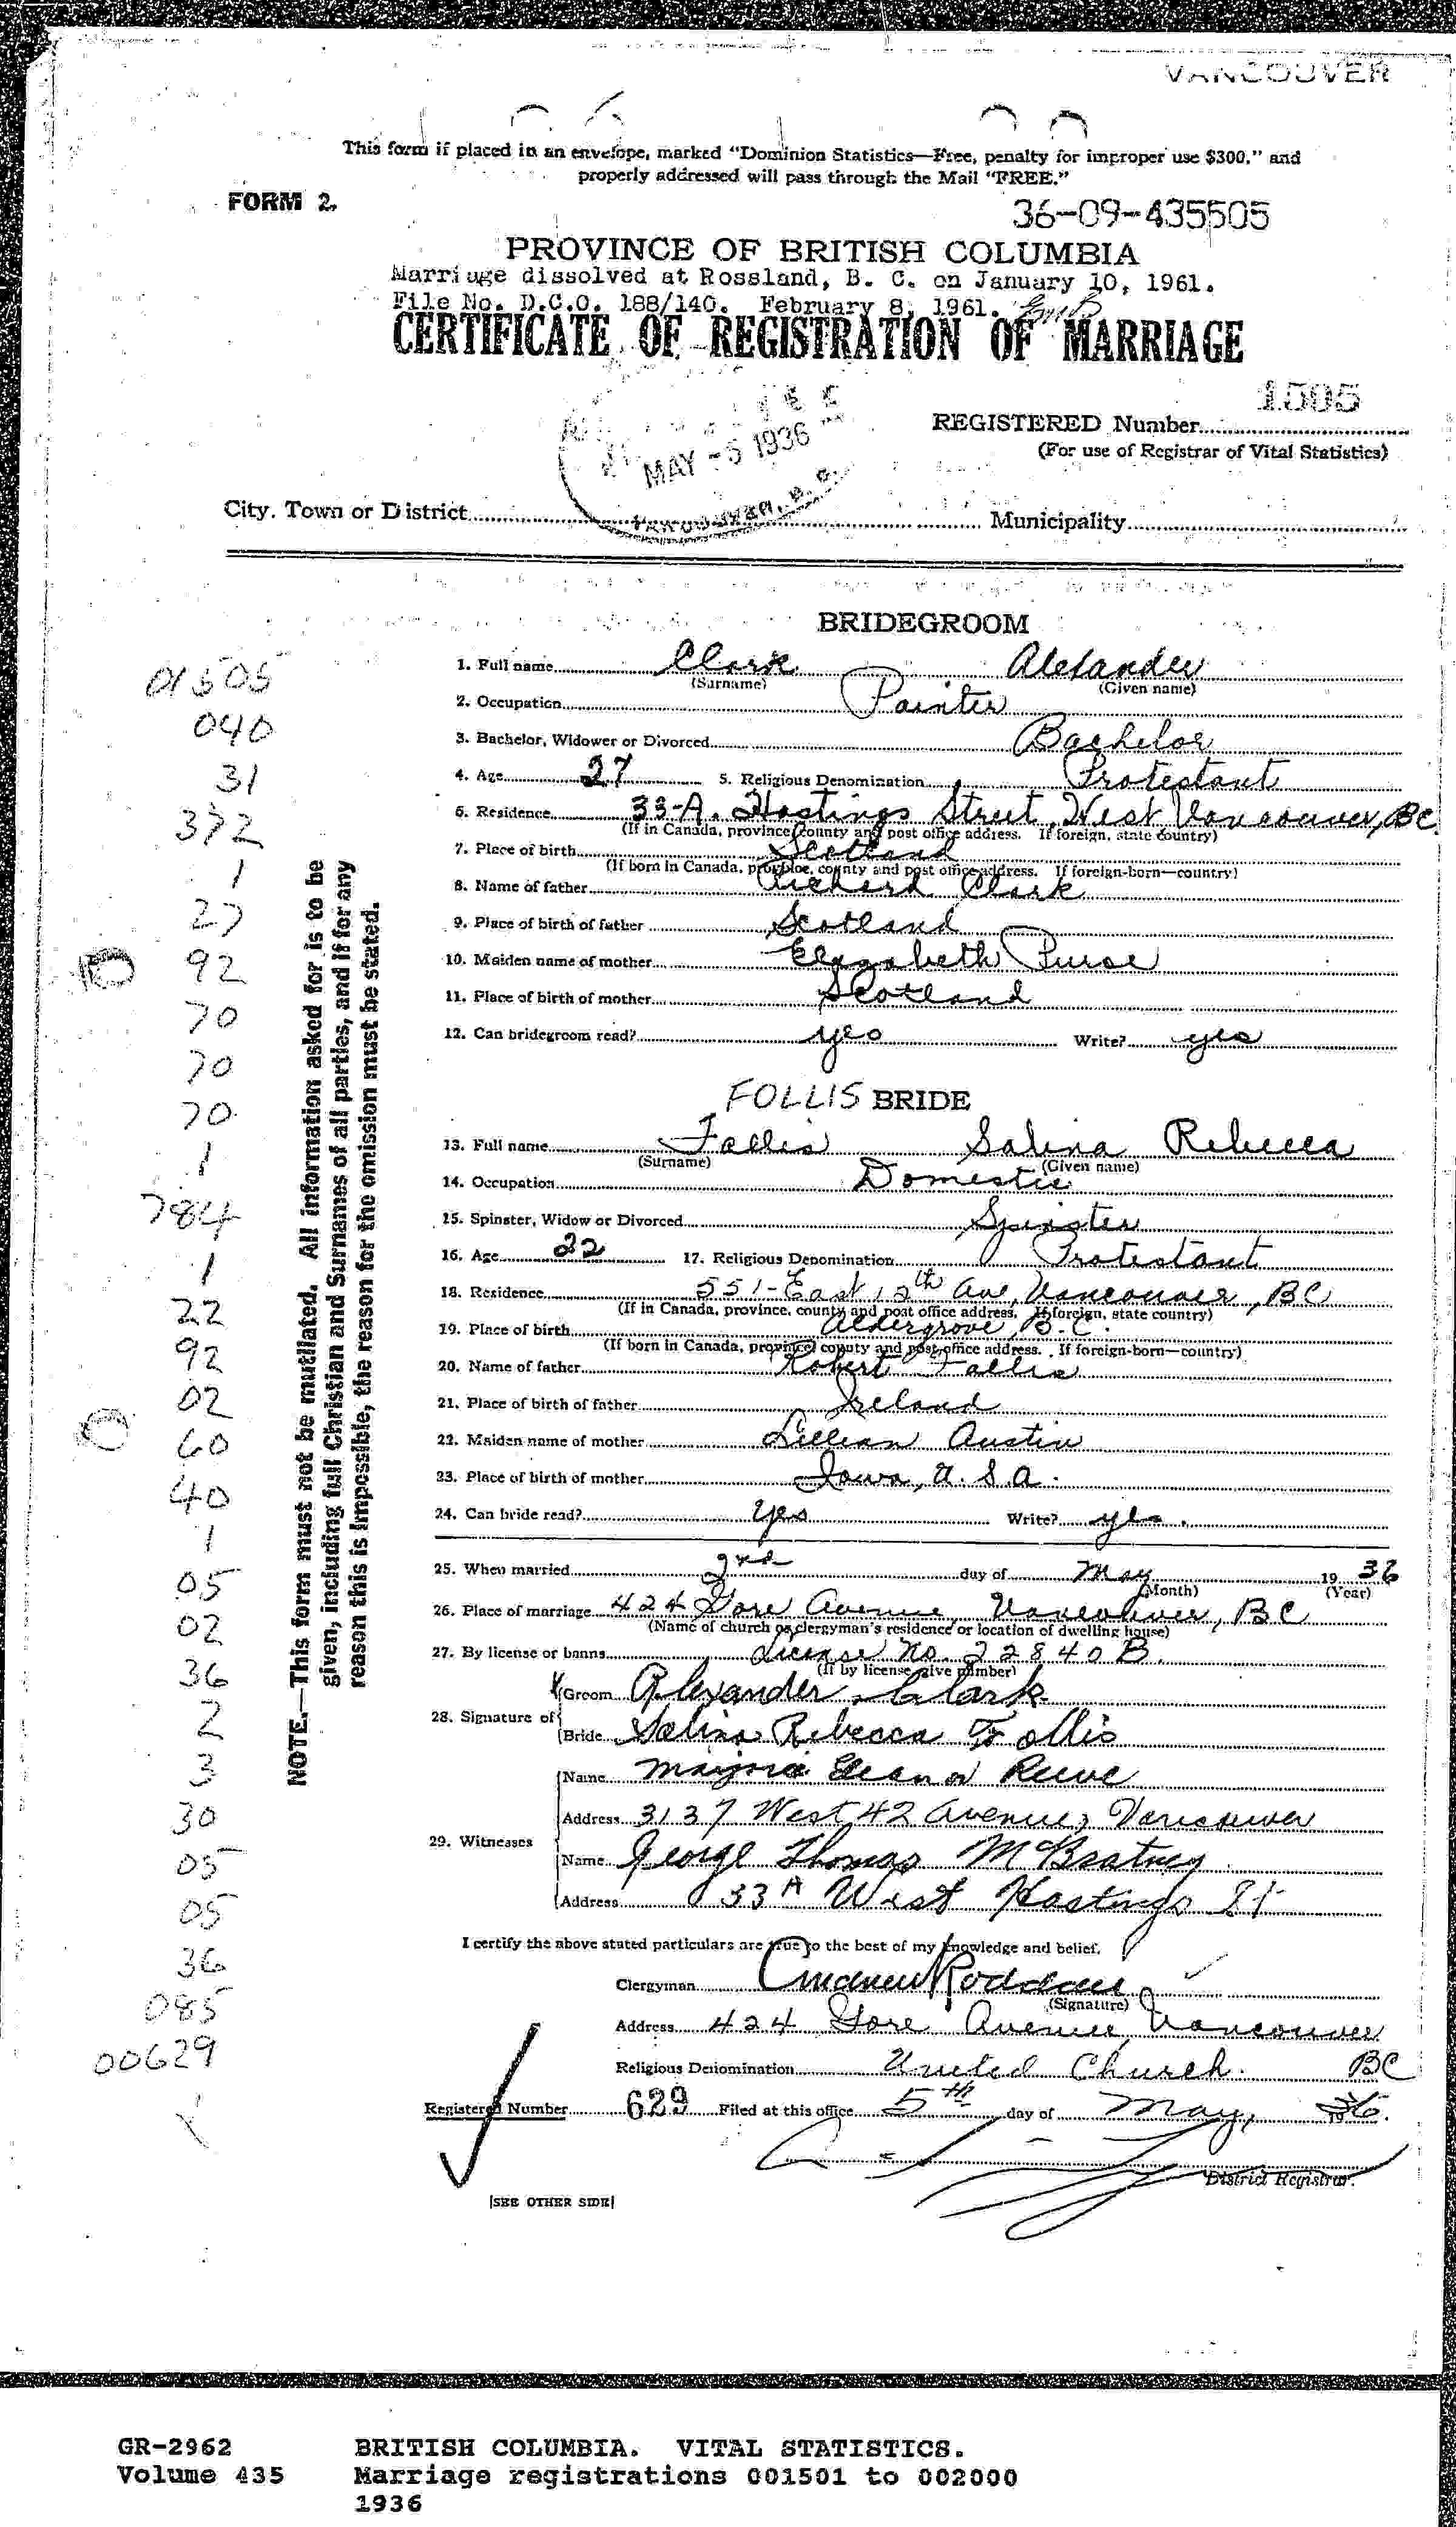 VANCOUVER
This form if placed in an envelope, marked "Dominion Statistics—Free, penalty for improper use $300," and
properly addressed will pass through the Mail "FREE."
FORM 2.
36-09-435505
PROVINCE OF BRITISH COLUMBIA
Marriage dissolved at Rossland, B. C. on January 10, 1961.
File No. D.C.O. 188/140. February 8, 1961.
CERTIFICATE OF REGISTRATION OF MARRIAGE
1505
REGISTERED Number
(For use of Registrar of Vital Statistics)
MAY -5 1936
VANCOUVER, B. C.
City, Town or District Municipality
BRIDEGROOM
1. Full name Clark Alexander
(Surname) (Given name)
2. Occupation Painter
3. Bachelor, Widower or Divorced Bachelor
4. Age 27 5. Religious Denomination Protestant
6. Residence 33-A. Hastings Street, West Vancouver, BC
(If in Canada, province county and post office address. If foreign, state country)
7. Place of birth Scotland
(If born in Canada, province, county and post office address. If foreign-born—country)
8. Name of father Richard Clark
9. Place of birth of father Scotland
10. Maiden name of mother Elizabeth Purse
11. Place of birth of mother Scotland
12. Can bridegroom read? yes Write? yes
FOLLIS BRIDE
13. Full name Follis Salina Rebecca
(Surname) (Given name)
14. Occupation Domestic
15. Spinster, Widow or Divorced Spinster
16. Age 22 17. Religious Denomination Protestant
18. Residence 551-East 12th Ave, Vancouver, BC
(If in Canada, province, county and post office address. If foreign, state country)
19. Place of birth Aldergrove, B.C.
(If born in Canada, province, county and post office address. If foreign-born—country)
20. Name of father Robert Follis
21. Place of birth of father Ireland
22. Maiden name of mother Lillian Austin
23. Place of birth of mother Iowa, U.S.A.
24. Can bride read? yes Write? yes.
25. When married 2nd day of May 19 36
(Month) (Year)
26. Place of marriage 424 Gore Avenue, Vancouver, BC
(Name of church or clergyman's residence or location of dwelling house)
27. By license or banns License No. 22840B.
(If by license give number)
28. Signature of
Groom Alexander Clark
Bride Salina Rebecca Follis
29. Witnesses
Name Marjorie Eleanor Reeve
Address 3137 West 42 Avenue, Vancouver
Name George Thomas McBratney
Address 33A West Hastings St
I certify the above stated particulars are true to the best of my knowledge and belief.
Clergyman Andrew Roddan
(Signature)
Address 424 Gore Avenue, Vancouver
Religious Denomination United Church. BC
Registered Number 629 Filed at this office 5th day of May, 1936.
District Registrar.
[SEE OTHER SIDE]
NOTE.—This form must not be mutilated. All information asked for is to be
given, including full Christian and Surnames of all parties, and if for any
reason this is impossible, the reason for the omission must be stated.
01505
040
31
372
1
27
92
70
70
70
1
784
1
22
92
02
60
40
1
05
02
36
2
3
30
05
05
36
085
00629
GR-2962 BRITISH COLUMBIA. VITAL STATISTICS.
Volume 435 Marriage registrations 001501 to 002000
1936